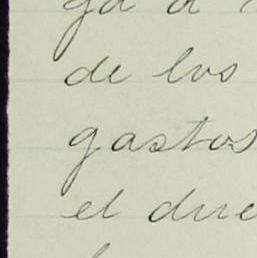 de los
gastos
el due